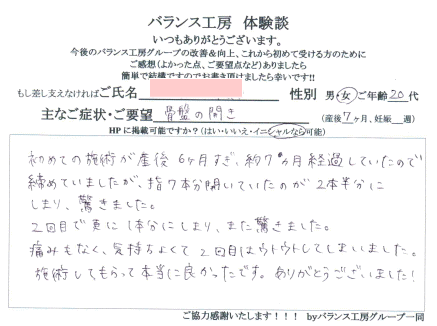 バランス工房 体験談
いつもありがとうございます。
今後のバランス工房グループの改善＆向上、これから初めて受ける方のために
ご感想(よかった点、ご要望点など)ありましたら
簡単で結構ですのでお書き頂けましたら幸いです!!
もし差し支えなければご氏名 性別 男・女 ご年齢20代
主なご症状・ご要望 骨盤の開き (産後7ヶ月、妊娠 週)
HPに掲載可能ですか？(はい・いいえ・イニシャルなら可能)
初めての施術が産後6ヶ月すぎ、約7ヶ月経過していたので
締めていましたが、指7本分開いていたのが2本半分に
しまり、驚きました。
2回目で更に1本分にしまり、また驚きました。
痛みもなく、気持ちよくて2回目はウトウトしてしまいました。
施術してもらって本当に良かったです。ありがとうございました!
ご協力感謝いたします!!! byバランス工房グループ一同